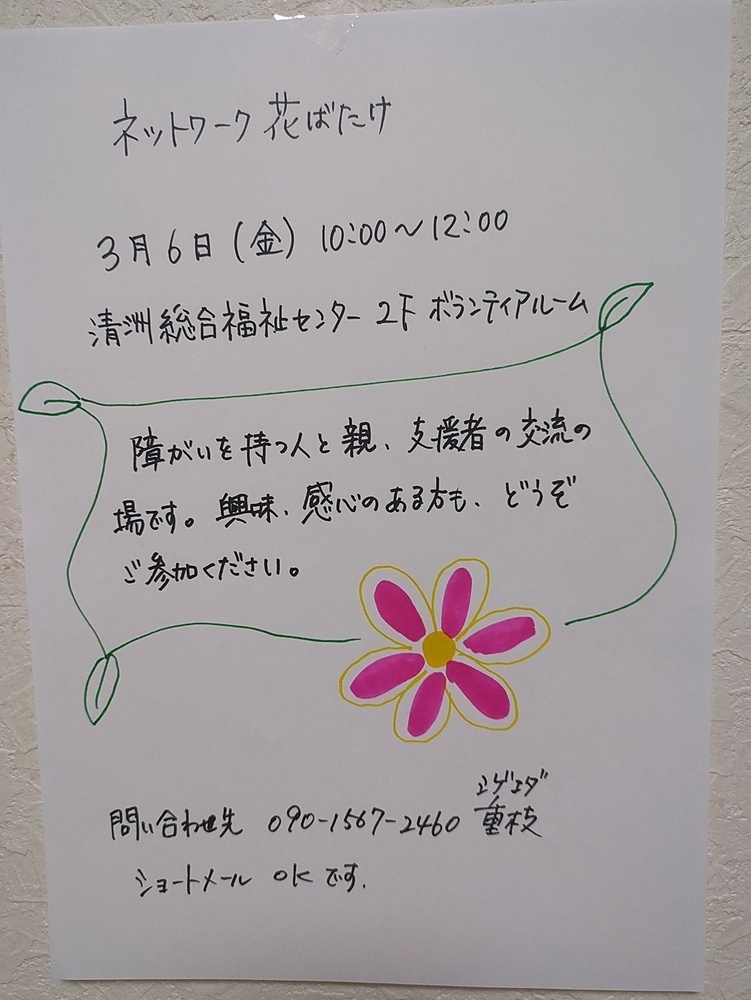 ネットワーク 花ばたけ
3月6日(金) 10:00~12:00
清洲総合福祉センター 2F ボランティアルーム
障がいを持つ人と親、支援者の交流の
場です。興味、感心のある方も、どうぞ
ご参加ください。
シゲエダ
問い合わせ先 090-1567-2460 重枝
ショートメール OKです.